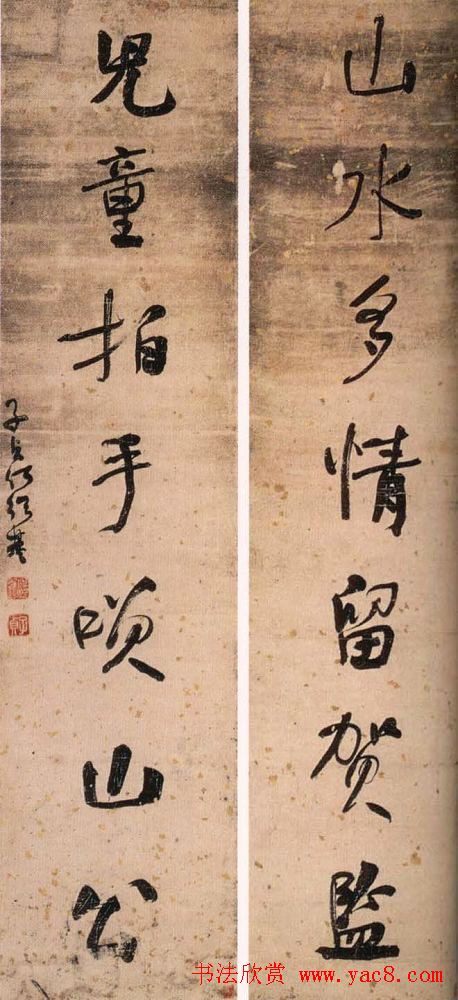 山水多情留賀監
兒童拍手喚山公
子貞何紹基
书法欣赏 www.yac8.com